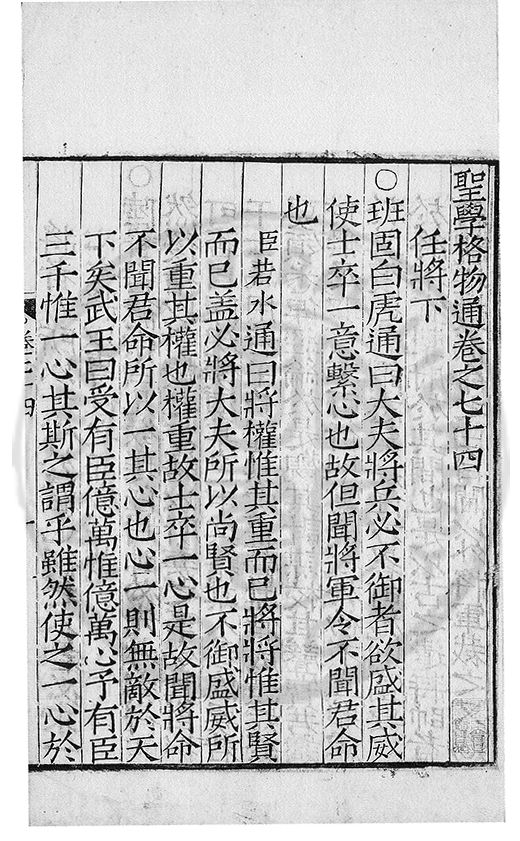 聖學格物通卷之七十四
任將下
○班固白虎通曰大夫將兵必不御者欲盛其威
使士卒一意繫心也故但聞將軍令不聞君命
也
臣若水通曰將權惟其重而已將將惟其賢
而已盖必將大夫所以尚賢也不御盛威所
以重其權也權重故士卒一心是故聞將命
不聞君命所以一其心也心一則無敵於天
下矣武王曰受有臣億萬惟億萬心予有臣
三千惟一心其斯之謂乎雖然使之一心於